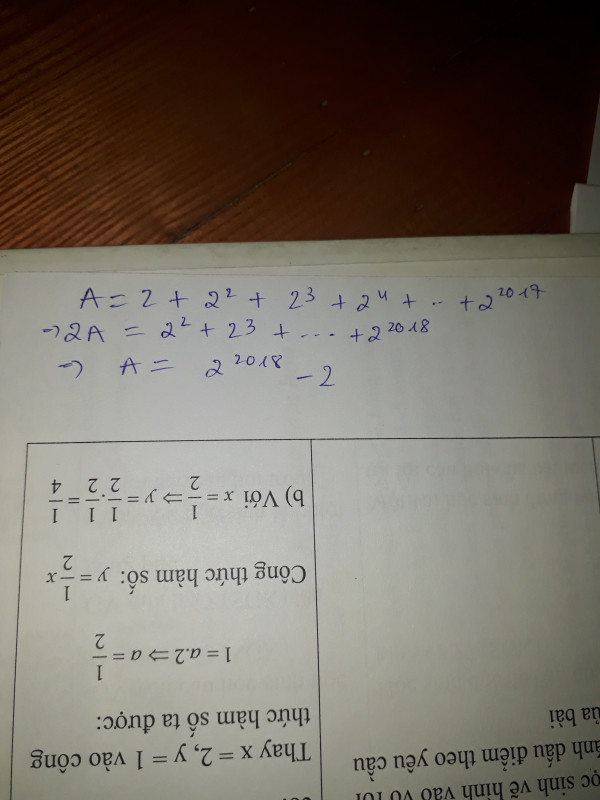 A = 2 + 2² + 2³ + 2⁴ + .. + 2²⁰¹⁷
→ 2A = 2² + 2³ + .... + 2²⁰¹⁸
⇒ A = 2²⁰¹⁸ - 2
sinh vẽ hình vào vở rồi
dấu điểm theo yêu cầu
bài
Thay x = 2, y = 1 vào công
thức hàm số ta được:
1 = a.2 ⇒ a = 1/2
Công thức hàm số: y = 1/2 x
b) Với x = 1/2 ⇒ y = 1/2 . 1/2 = 1/4